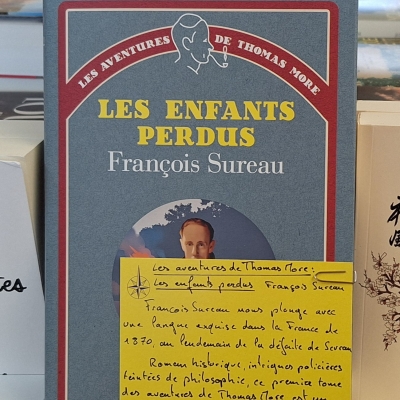 LES AVENTURES DE THOMAS MORE
LES ENFANTS
PERDUS
François Sureau
Les aventures de Thomas More :
Les enfants perdus François Sureau
François Sureau nous plonge avec
une langue exquise dans la France de
1870, au lendemain de la défaite de Sevran
Romans historique, intrigues policières
teintées de philosophie, ce premier tome
des aventures de Thomas More est un
tes